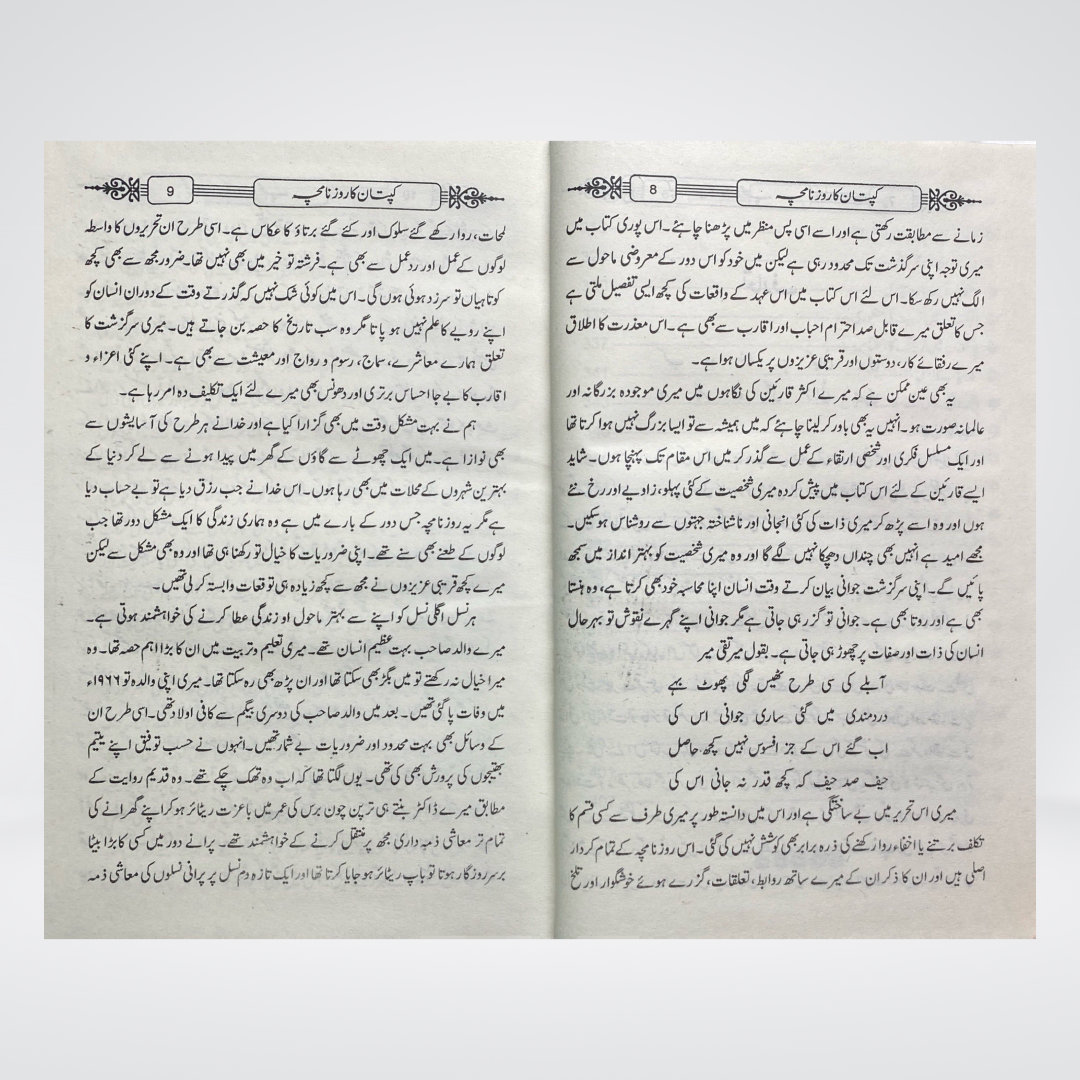 8
کپتان کا روزنامچہ
زمانے سے مطابقت رکھتی ہے اور اسے اسی پس منظر میں پڑھنا چاہئے۔ اس پوری کتاب میں
میری توجہ اپنی سرگذشت تک محدود رہی ہے لیکن میں خود کو اس دور کے معروضی ماحول سے
الگ نہیں رکھ سکا۔ اس لئے اس کتاب میں اس عہد کے واقعات کی کچھ ایسی تفصیل ملتی ہے
جس کا تعلق میرے قابل صد احترام احباب اور اقارب سے بھی ہے۔ اس معذرت کا اطلاق
میرے رفقائے کار، دوستوں اور قریبی عزیزوں پر یکساں ہوا ہے۔
یہ بھی عین ممکن ہے کہ میرے اکثر قارئین کی نگاہوں میں میری موجودہ بزرگانہ اور
عالمانہ صورت ہو۔ انہیں یہ بھی باور کر لینا چاہئے کہ میں ہمیشہ سے تو ایسا بزرگ نہیں ہوا کرتا تھا
اور ایک مسلسل فکری اور شخصی ارتقاء کے عمل سے گذر کر میں اس مقام تک پہنچا ہوں۔ شاید
ایسے قارئین کے لئے اس کتاب میں پیش کردہ میری شخصیت کے کئی پہلو، زاویے اور رخ نئے
ہوں اور وہ اسے پڑھ کر میری ذات کی کئی انجانی اور ناشناختہ جہتوں سے روشناس ہو سکیں۔
مجھے امید ہے انہیں بھی چنداں دھچکا نہیں لگے گا اور وہ میری شخصیت کو بہتر انداز میں سمجھ
پائیں گے۔ اپنی سرگزشت جوانی بیان کرتے وقت انسان اپنا محاسبہ خود بھی کرتا ہے، وہ ہنستا
بھی ہے اور روتا بھی ہے۔ جوانی تو گزر ہی جاتی ہے مگر جوانی اپنے گہرے نقوش تو بہرحال
انسان کی ذات اور صفات پر چھوڑ ہی جاتی ہے۔ بقول میر تقی میر
آبلے کی سی طرح ٹھیس لگی پھوٹ بہے
دردمندی میں گئی ساری جوانی اس کی
اب گئے اس کے جز افسوس نہیں کچھ حاصل
حیف صد حیف کہ کچھ قدر نہ جانی اس کی
میری اس تحریر میں بے ساختگی ہے اور اس میں دانستہ طور پر میری طرف سے کسی قسم کا
تکلف برتنے یا اخفاء روا رکھنے کی ذرہ برابر بھی کوشش نہیں کی گئی۔ اس روزنامچہ کے تمام کردار
اصلی ہیں اور ان کا ذکر ان کے میرے ساتھ روابط، تعلقات، گزرے ہوئے خوشگوار اور تلخ
9
کپتان کا روزنامچہ
لمحات، روا رکھے گئے سلوک اور کئے گئے برتاؤ کا عکاس ہے۔ اسی طرح ان تحریروں کا واسطہ
لوگوں کے عمل اور ردعمل سے بھی ہے۔ فرشتہ تو خیر میں بھی نہیں تھا۔ ضرور مجھ سے بھی کچھ
کوتاہیاں تو سرزد ہوئی ہوں گی۔ اس میں کوئی شک نہیں کہ گذرتے وقت کے دوران انسان کو
اپنے رویے کا علم نہیں ہو پاتا مگر وہ سب تاریخ کا حصہ بن جاتے ہیں۔ میری سرگزشت کا
تعلق ہمارے معاشرے، سماج، رسوم و رواج اور معیشت سے بھی ہے۔ اپنے کئی اعزاء و
اقارب کا بے جا احساس برتری اور دھونس بھی میرے لئے ایک تکلیف دہ امر رہا ہے۔
ہم نے بہت مشکل وقت میں بھی گزارا کیا ہے اور خدا نے ہر طرح کی آسایشوں سے
بھی نوازا ہے۔ میں ایک چھوٹے سے گاؤں کے گھر میں پیدا ہونے سے لے کر دنیا کے
بہترین شہروں کے محلات میں بھی رہا ہوں۔ اس خدا نے جب رزق دیا ہے تو بے حساب دیا
ہے مگر یہ روزنامچہ جس دور کے بارے میں ہے وہ ہماری زندگی کا ایک مشکل دور تھا جب
لوگوں کے طعنے بھی سنے تھے۔ اپنی ضروریات کا خیال تو رکھنا ہی تھا اور وہ بھی مشکل سے لیکن
میرے کچھ قریبی عزیزوں نے مجھ سے کچھ زیادہ ہی توقعات وابستہ کر لی تھیں۔
ہر نسل اگلی نسل کو اپنے سے بہتر ماحول او زندگی عطا کرنے کی خواہشمند ہوتی ہے۔
میرے والد صاحب بہت عظیم انسان تھے۔ میری تعلیم و تربیت میں ان کا بڑا اہم حصہ تھا۔ وہ
میرا خیال نہ رکھتے تو میں بگڑ بھی سکتا تھا اور ان پڑھ بھی رہ سکتا تھا۔ میری اپنی والدہ تو ۱۹۶۶ء
میں وفات پا گئی تھیں۔ بعد میں والد صاحب کی دوسری بیگم سے کافی اولاد تھی۔ اسی طرح ان
کے وسائل بھی بہت محدود اور ضروریات بے شمار تھیں۔ انہوں نے حسب توفیق اپنے یتیم
بھتیجوں کی پرورش بھی کی تھی۔ یوں لگتا تھا کہ اب وہ تھک چکے تھے۔ وہ قدیم روایت کے
مطابق میرے ڈاکٹر بنتے ہی ترپن چون برس کی عمر میں باعزت ریٹائر ہو کر اپنے گھرانے کی
تمام تر معاشی ذمہ داری مجھ پر منتقل کرنے کے خواہشمند تھے۔ پرانے دور میں کسی کا بڑا بیٹا
برسر روزگار ہوتا تو باپ ریٹائر ہو جایا کرتا تھا اور ایک تازہ دم نسل پر پرانی نسلوں کی معاشی ذمہ